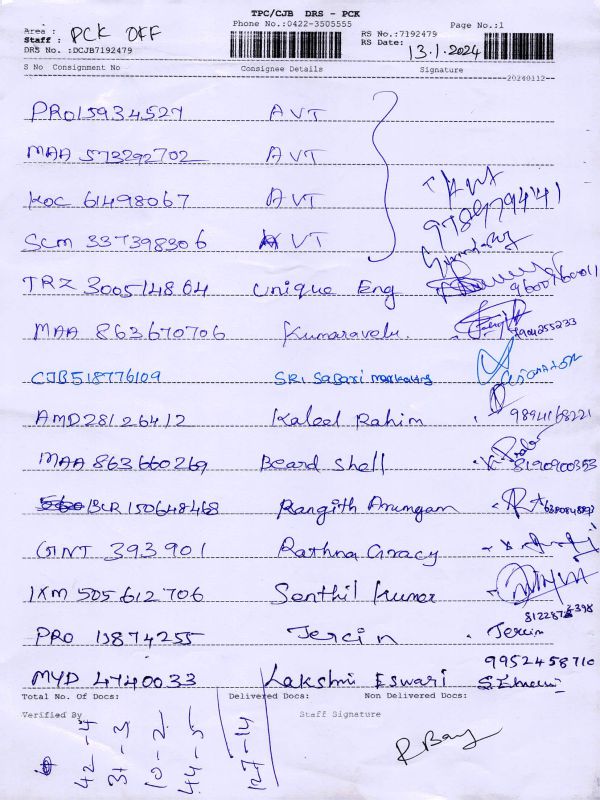 TPC/CJB DRS - PCK
Phone No.:0422-3505555 Page No.:1
Area :
Staff : PCK OFF
DRS No. :DCJB7192479
RS No.:7192479
RS Date: 13.1.2024
S No Consignment No Consignee Details Signature
20240112
PRO15934527 AVT
MAA 573292702 AVT
KOC 61498067 AVT
SCM 337398306 AVT
9789794441
TRZ 300514864 Unique Eng
9600860011
MAA 863670706 Kumaravelu.
7904255233
CJB518776109 SRI SaBari marketing
AMD28126412 Kaleel Rahim 9894168221
MAA 863660269 Beard shell 8190900353
BLR 150648468 Rangith Arumgam
GNT 393901 Rathna Gracy
IXM 505612706 Senthil Kumar
PRO 15874255 Jercin Jercin
9952458710
MYD 4740033 Lakshmi Eswari
Total No. of Docs: Delivered Docs: Non Delivered Docs:
Verified By Staff Signature
42-4
31-3
10-2
44-5
127-14